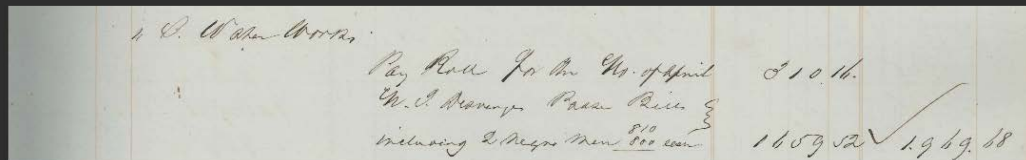 " S. Water Works.
Pay Roll for the Mo. of April 310 16.
W. J. Desvenges Passe Bills
810
including 2 negro men 800 each 1659 52 ✓ 1.969.68